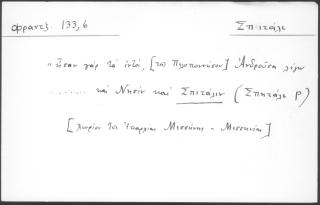 Φραντζ. 133,6 Σπιτάλι
"ἦσαν γὰρ τὰ ἐντὸς [τοῦ Πελοποννήσου] Ἀνδροῦσα λέγω
......... καὶ Νησὶν καὶ Σπιτάλιν (Σπητάλι P)
[χωρίον τῆς Ἐπαρχίας Μεσσήνης - Μεσσηνίας]